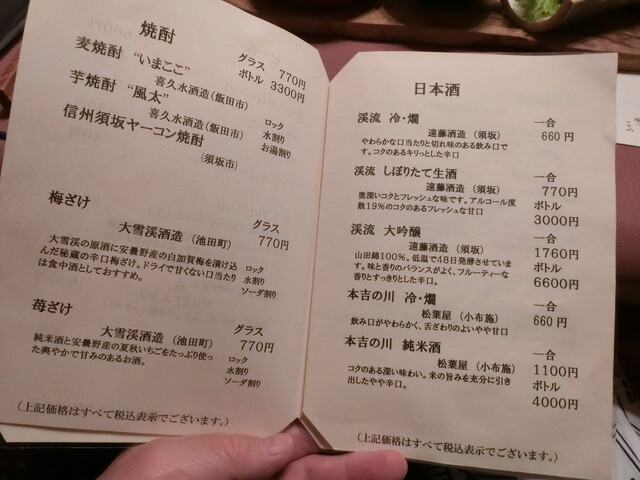 焼酎
麦焼酎 “いまここ” グラス 770円
ボトル 3300円
喜久水酒造(飯田市)
芋焼酎 “風太”
喜久水酒造(飯田市)
ロック
水割り
お湯割り
信州須坂ヤーコン焼酎
(須坂市)
梅ざけ
グラス
大雪渓酒造(池田町) 770円
大雪渓の原酒に安曇野産の白加賀梅を漬け込
んだ秘蔵の辛口梅ざけ。ドライで甘くない口当たり
は食中酒としておすすめ。
ロック
水割り
ソーダ割り
苺ざけ
グラス
大雪渓酒造(池田町) 770円
純米酒と安曇野産の夏秋いちごをたっぷり使っ
た爽やかで甘みのあるお酒。
ロック
水割り
ソーダ割り
(上記価格はすべて税込表示でございます。)
日本酒
渓流 冷・燗 一合
遠藤酒造(須坂) 660円
やわらかな口当たりと切れ味のある飲み口で
す。コクのあるキリっとした辛口
渓流 しぼりたて生酒 一合
遠藤酒造(須坂) 770円
奥深いコクとフレッシュな味です。アルコール度
数19%のコクのあるフレッシュな甘口
ボトル
3000円
渓流 大吟醸 一合
遠藤酒造(須坂) 1760円
山田錦100%。低温で48日発酵させていま
す。味と香りのバランスがよく、フルーティーな
香りとすっきりとした辛口。
ボトル
6600円
本吉の川 冷・燗 一合
松葉屋(小布施) 660円
飲み口がやわらかく、舌ざわりのよいやや甘口
本吉の川 純米酒 一合
松葉屋(小布施) 1100円
コクのある深い味わい。米の旨みを充分に引き
出したやや辛口。
ボトル
4000円
(上記価格はすべて税込表示でございます。)